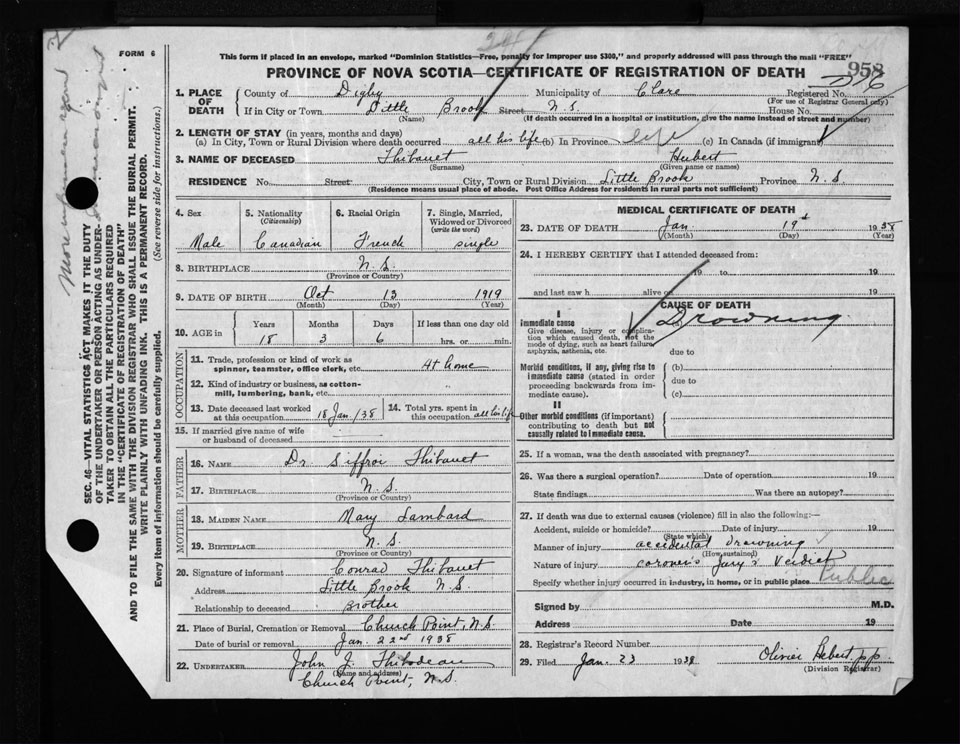 FORM 6
This form if placed in an envelope, marked "Dominion Statistics—Free, penalty for improper use $300," and properly addressed will pass through the mail "FREE"
PROVINCE OF NOVA SCOTIA—CERTIFICATE OF REGISTRATION OF DEATH
958
1. PLACE OF DEATH County of Digby Municipality of Clare Registered No.
(For use of Registrar General only)
If in City or Town Little Brook Street N.S. House No.
(Name) (If death occurred in a hospital or institution, give the name instead of street and number)
2. LENGTH OF STAY (in years, months and days)
(a) In City, Town or Rural Division where death occurred all his life (b) In Province life (c) In Canada (if immigrant)
3. NAME OF DECEASED Thibault Hubert
(Surname) (Given name or names)
RESIDENCE No. Street City, Town or Rural Division Little Brook Province N.S.
(Residence means usual place of abode. Post Office Address for residents in rural parts not sufficient)
4. Sex 5. Nationality (Citizenship) 6. Racial Origin 7. Single, Married, Widowed or Divorced (write the word)
Male Canadian French single
8. BIRTHPLACE N.S.
(Province or Country)
9. DATE OF BIRTH Oct 13 1919
(Month) (Day) (Year)
10. AGE in Years Months Days If less than one day old
18 3 6 hrs. or min.
OCCUPATION
11. Trade, profession or kind of work as spinner, teamster, office clerk, etc. At home
12. Kind of industry or business, as cotton-mill, lumbering, bank, etc.
13. Date deceased last worked at this occupation 18 Jan /38 14. Total yrs. spent in this occupation all his life
15. If married give name of wife or husband of deceased
FATHER
16. NAME Dr. Siffroi Thibault
17. BIRTHPLACE N.S.
(Province or Country)
MOTHER
18. MAIDEN NAME Mary Lambard
19. BIRTHPLACE N.S.
(Province or Country)
20. Signature of informant Conrad Thibault
Address Little Brook N.S.
Relationship to deceased Brother
21. Place of Burial, Cremation or Removal Church Point, N.S.
Date of burial or removal Jan. 22nd 1938
22. UNDERTAKER John J. Thibodeau
(Name and address)
Church Point, N.S.
MEDICAL CERTIFICATE OF DEATH
23. DATE OF DEATH Jan 19 1938
(Month) (Day) (Year)
24. I HEREBY CERTIFY that I attended deceased from:
19 to 19
and last saw h alive on 19
CAUSE OF DEATH
I
Immediate cause (a) Drowning
Give disease, injury or complication which caused death, not the mode of dying, such as heart failure, asphyxia, asthenia, etc.
due to
Morbid conditions, if any, giving rise to immediate cause (stated in order proceeding backwards from immediate cause).
(b)
due to
(c)
II
Other morbid conditions (if important) contributing to death but not causally related to immediate cause.
25. If a woman, was the death associated with pregnancy?
26. Was there a surgical operation? Date of operation 19
State findings Was there an autopsy?
27. If death was due to external causes (violence) fill in also the following:—
Accident, suicide or homicide? Date of injury 19
(State which)
Manner of injury accidental drowning
(How sustained)
Nature of injury coroner's Jury's Verdict
Specify whether injury occurred in industry, in home, or in public place Public
Signed by M.D.
Address Date 19
28. Registrar's Record Number
29. Filed Jan. 23 1938 Olivier Hebert, p.p.
(Division Registrar)
SEC. 46—VITAL STATISTICS ACT MAKES IT THE DUTY
OF THE UNDERTAKER OR PERSON ACTING AS UNDER-
TAKER TO OBTAIN ALL THE PARTICULARS REQUIRED
IN THE "CERTIFICATE OF REGISTRATION OF DEATH"
AND TO FILE THE SAME WITH THE DIVISION REGISTRAR WHO SHALL ISSUE THE BURIAL PERMIT.
WRITE PLAINLY WITH UNFADING INK. THIS IS A PERMANENT RECORD.
Every item of information should be carefully supplied. (See reverse side for instructions.)